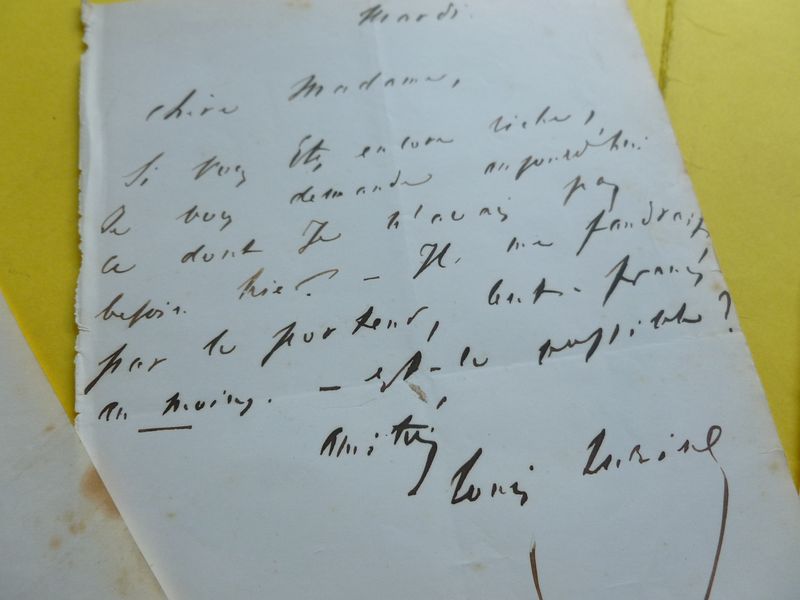 Mardi.
Chère Madame,
Si vous êtes encore riche,
Je vous demande aujourd'hui
ce dont Je n'avais pas
besoin hier. – Il me faudrait,
par le porteur, cent francs
au moins. – est-ce possible ?
Amitiés,
Louis Lurine